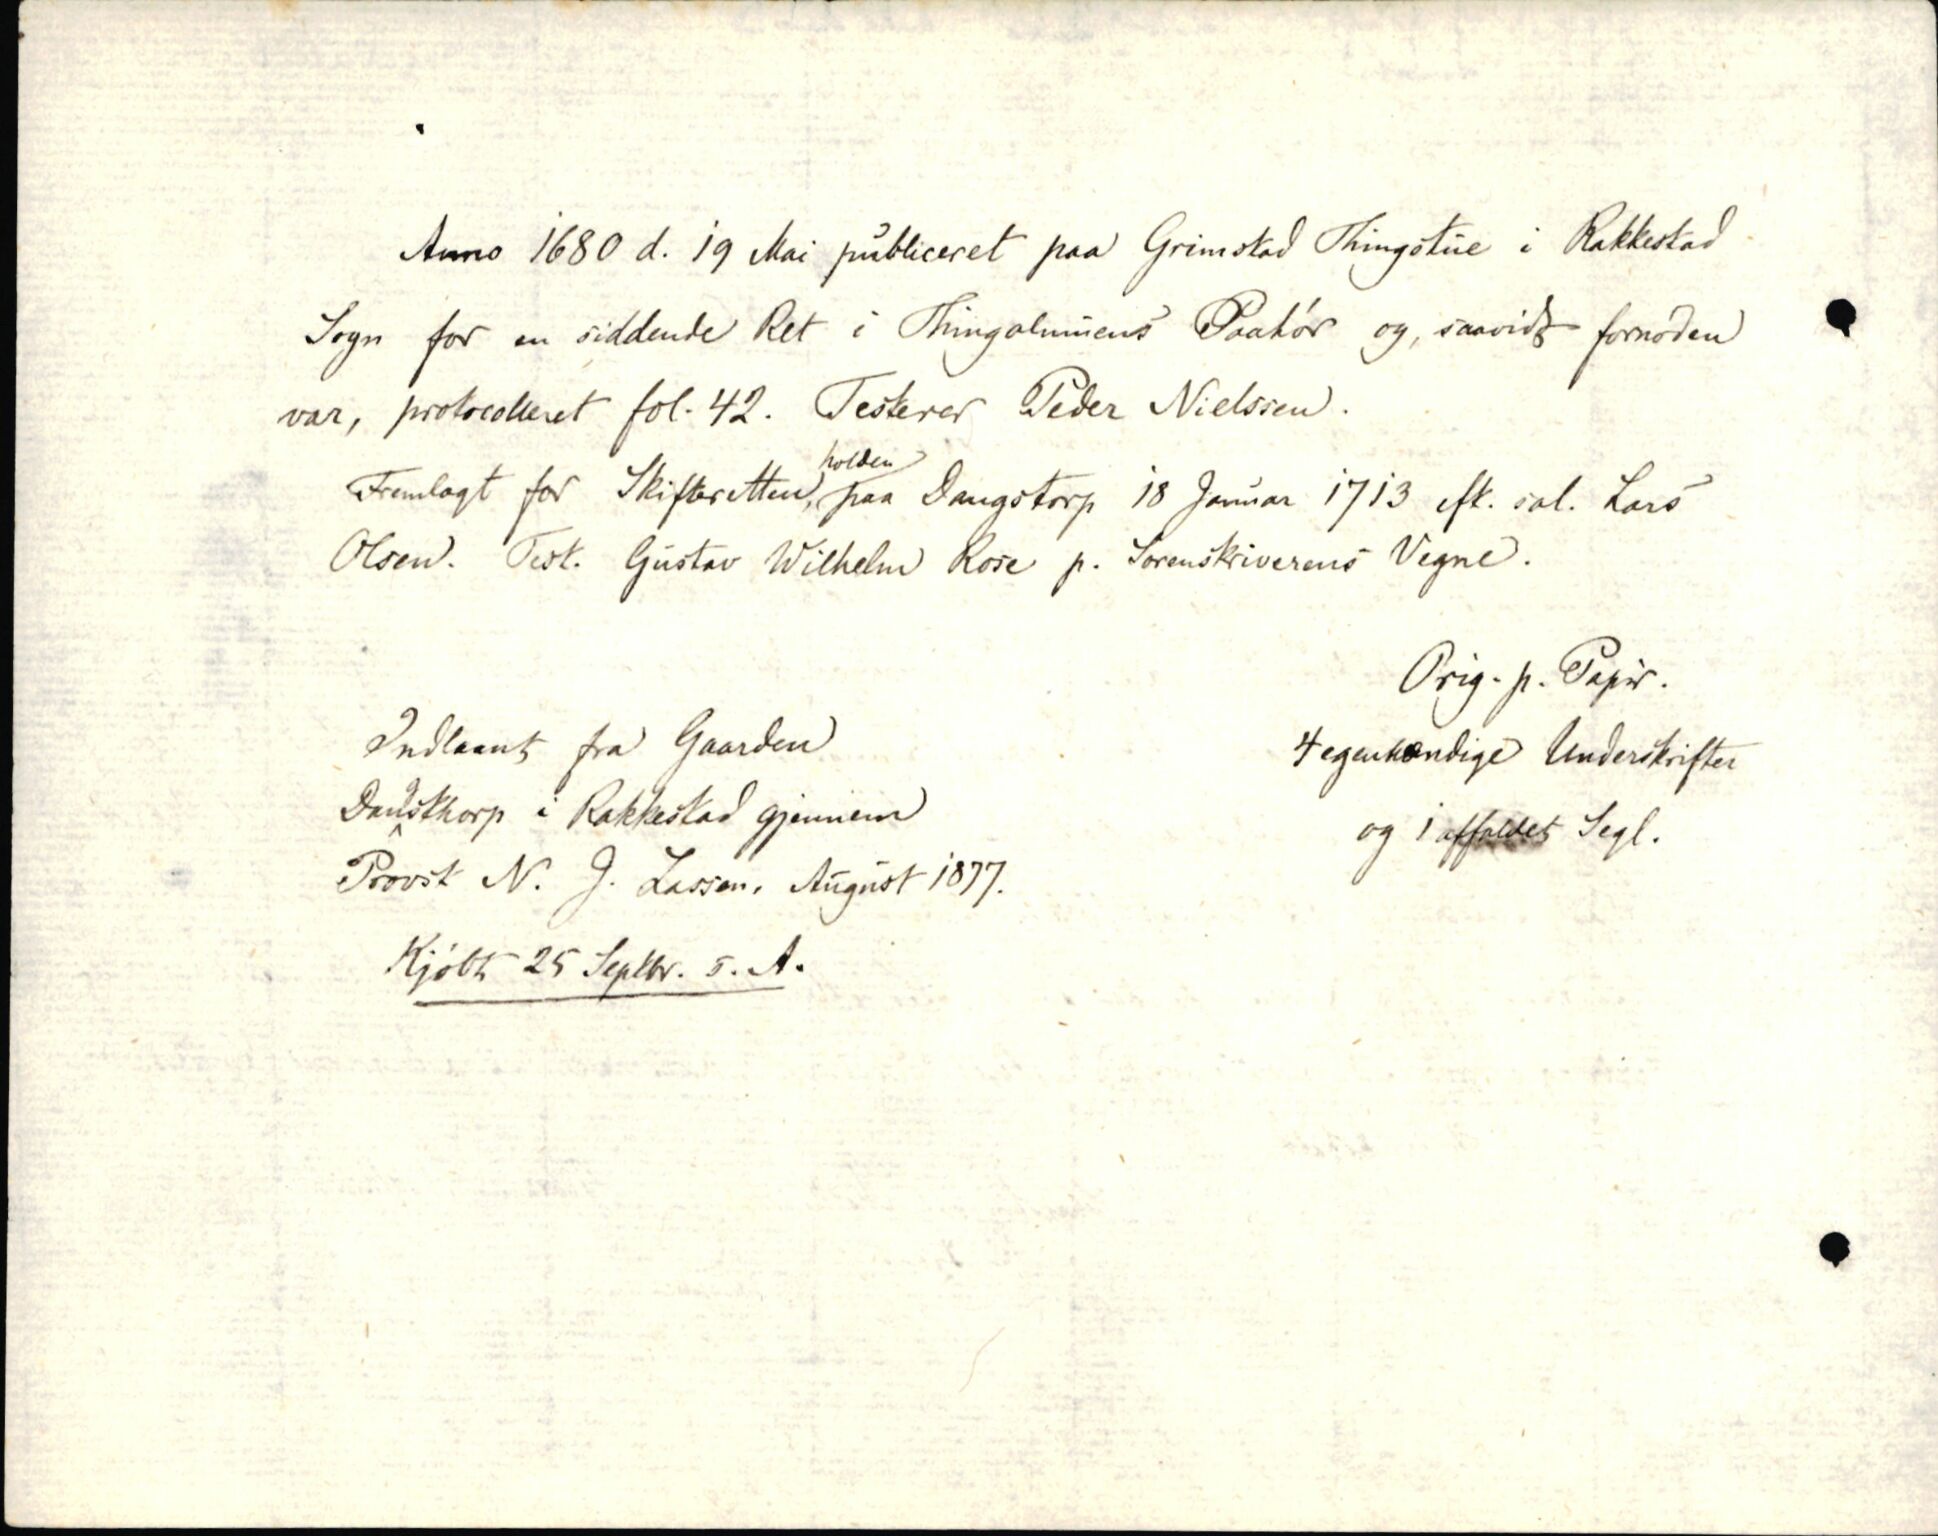 Anno 1680 d. 19 Mai publiceret paa Grimstad Thingstue i Rakkestad
Sogn for en siddende Ret i Thingalmuens Paahör og, saavidt fornöden
var, protocolleret fol. 42. Testerer Peder Nielssen.
Fremlagt for Skifteretten, holden paa Daugstorp 18 Januar 1713 eft. sal. Lars
Olsen. Test. Gustav Wilhelm Rose p. Sorenskriverens Vegne.
Orig. p. Papir.
4 egenhændige Underskrifter
og 1 affaldet Segl.
Indlaant fra Gaarden
Daugsthorp i Rakkestad gjennem
Provst N. J. Lassen, August 1877.
Kjöbt 25 Septbr. s. A.